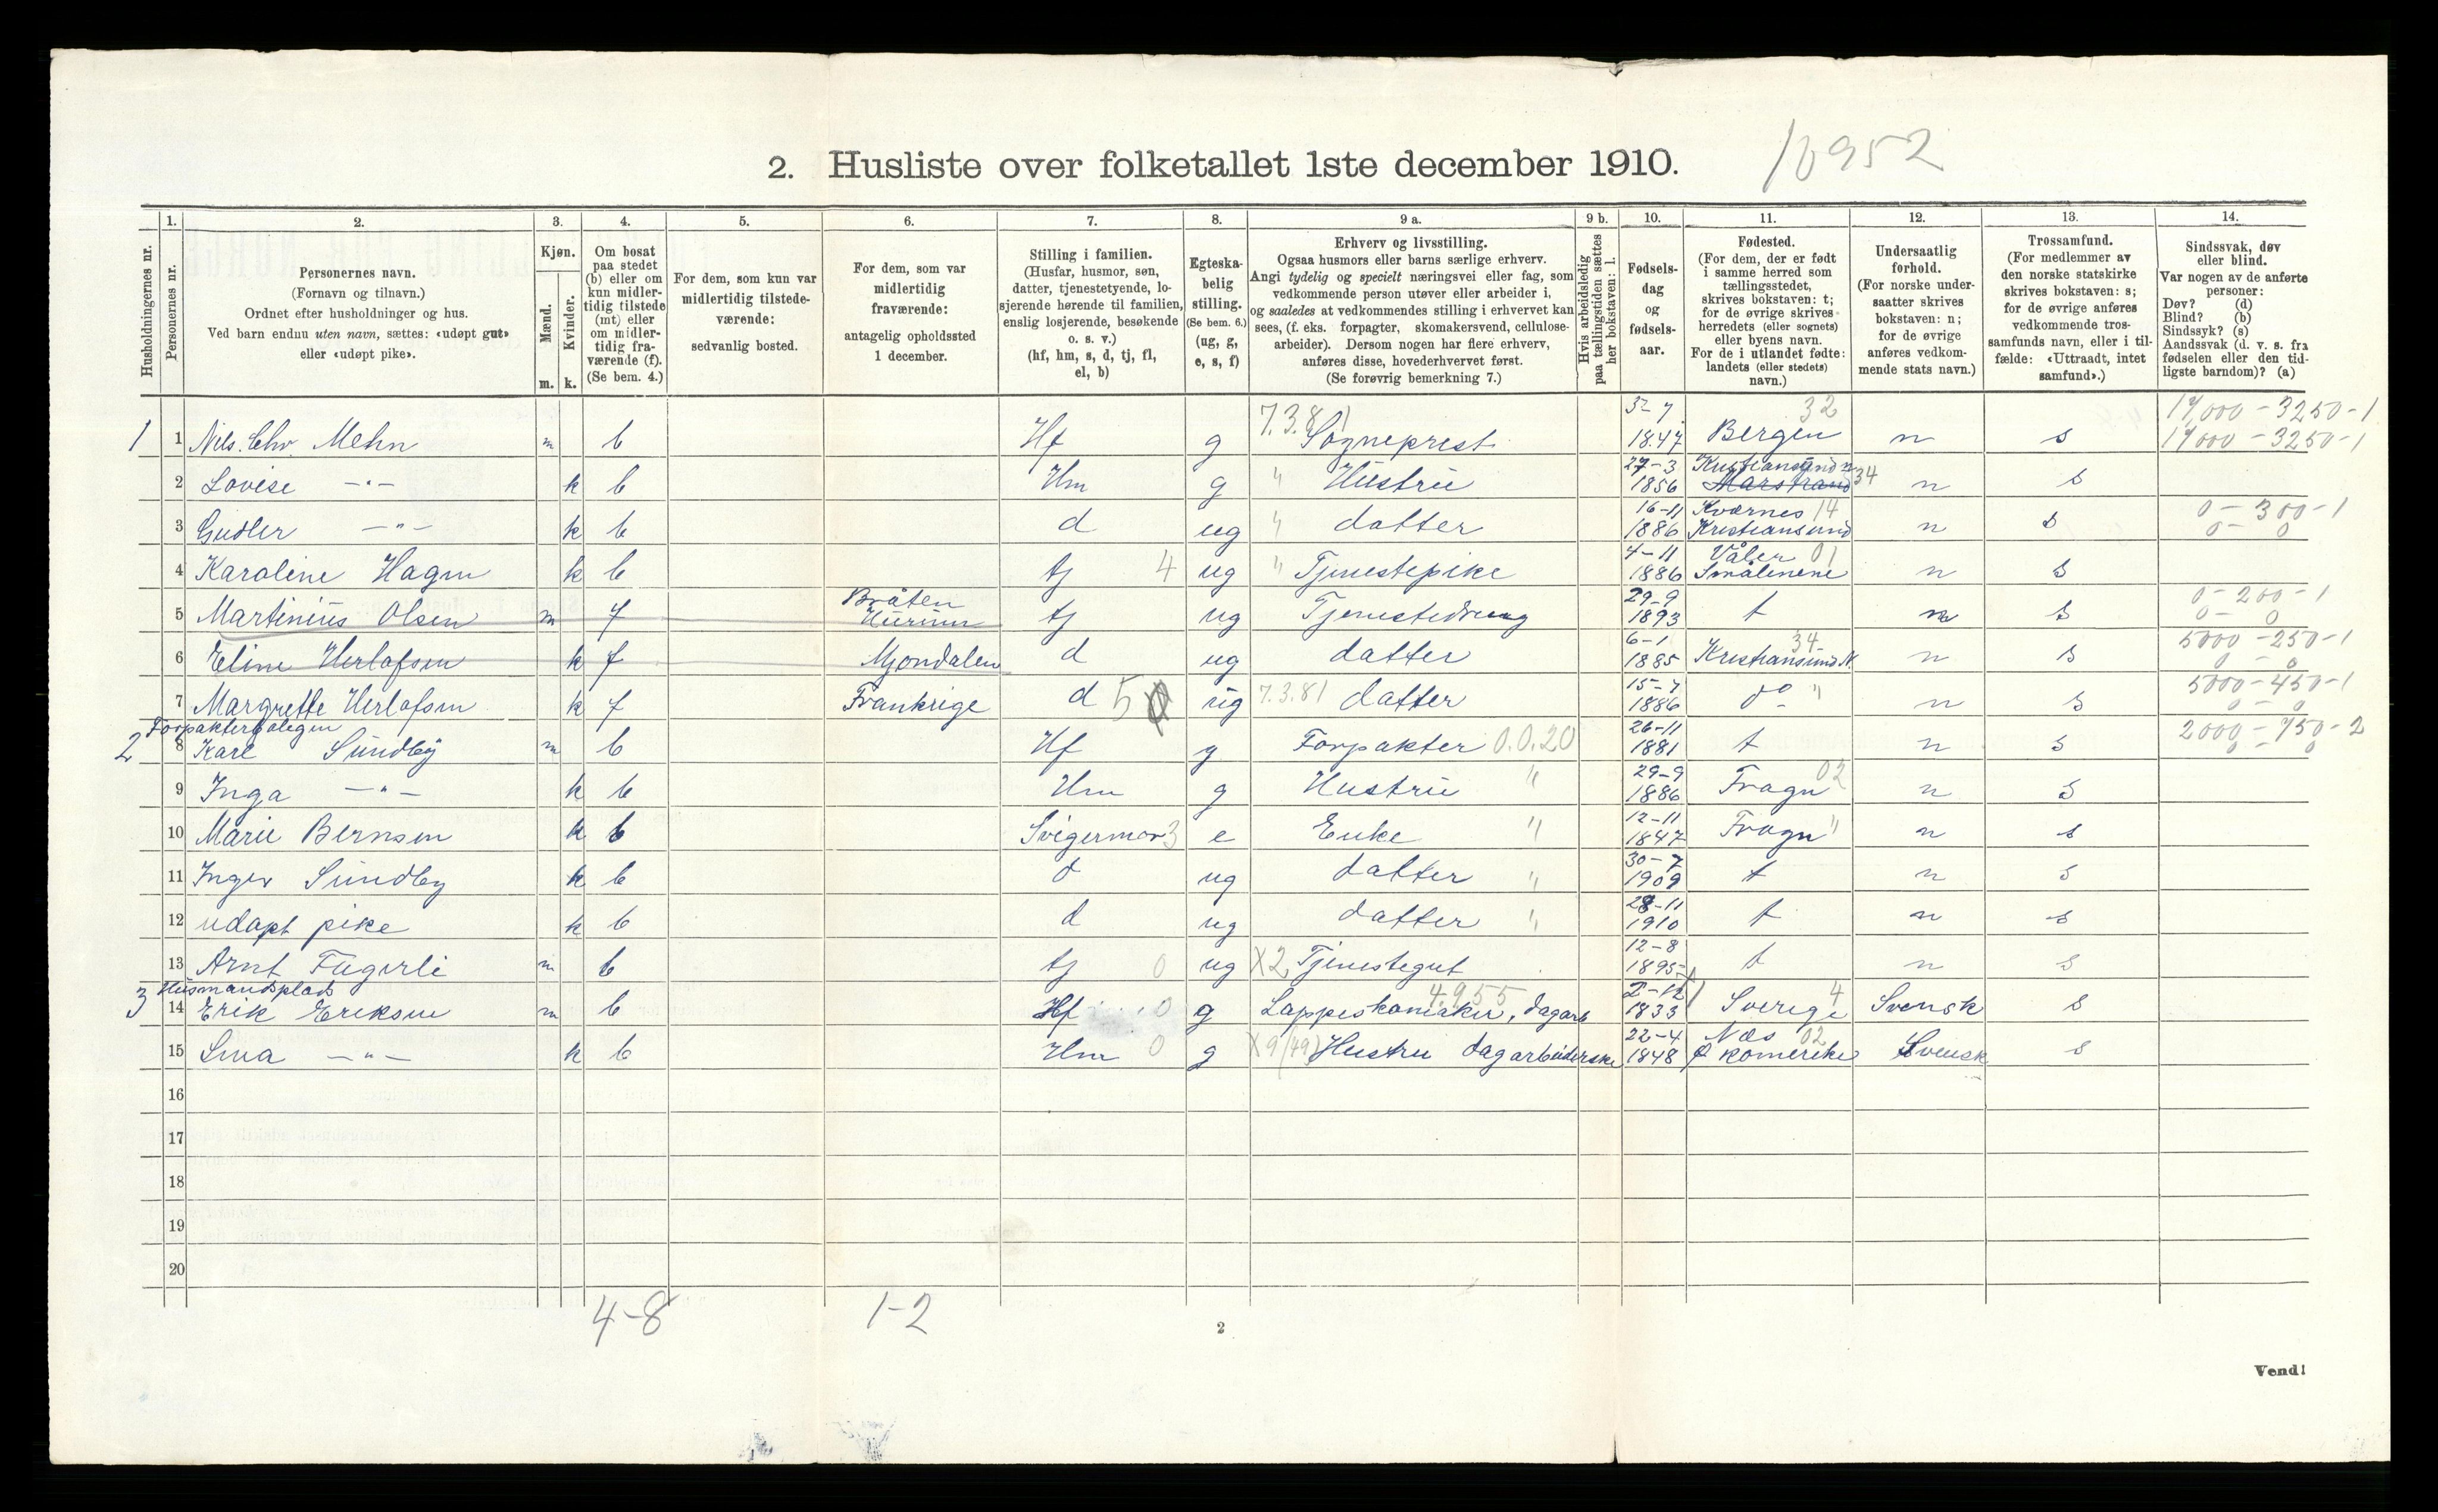 2. Husliste over folketallet 1ste december 1910.
10952
Husholdningernes nr.
1. Personernes nr.
2. Personernes navn. (Fornavn og tilnavn.) Ordnet efter husholdninger og hus. Ved barn endnu uten navn, sættes: «udøpt gut» eller «udøpt pike».
3. Kjøn. Mænd. m. Kvinder. k.
4. Om bosat paa stedet (b) eller om kun midlertidig tilstede (mt) eller om midlertidig fraværende (f). (Se bem. 4.)
5. For dem, som kun var midlertidig tilstedeværende: sedvanlig bosted.
6. For dem, som var midlertidig fraværende: antagelig opholdssted 1 december.
7. Stilling i familien. (Husfar, husmor, søn, datter, tjenestetyende, losjerende hørende til familien, enslig losjerende, besøkende o. s. v.) (hf, hm, s, d, tj, fl, el, b)
8. Egteskabelig stilling. (Se bem. 6.) (ug, g, e, s, f)
9 a. Erhverv og livsstilling. Ogsaa husmors eller barns særlige erhverv. Angi tydelig og specielt næringsvei eller fag, som vedkommende person utøver eller arbeider i, og saaledes at vedkommendes stilling i erhvervet kan sees, (f. eks. forpagter, skomakersvend, cellulosearbeider). Dersom nogen har flere erhverv, anføres disse, hovederhvervet først. (Se forøvrig bemerkning 7.)
9 b. Hvis arbeidsledig paa tællingstiden sættes her bokstaven: l.
10. Fødselsdag og fødselsaar.
11. Fødested. (For dem, der er født i samme herred som tællingsstedet, skrives bokstaven: t; for de øvrige skrives herredets (eller sognets) eller byens navn. For de i utlandet fødte: landets (eller stedets) navn.)
12. Undersaatlig forhold. (For norske undersaatter skrives bokstaven: n; for de øvrige anføres vedkommende stats navn.)
13. Trossamfund. (For medlemmer av den norske statskirke skrives bokstaven: s; for de øvrige anføres vedkommende trossamfunds navn, eller i tilfælde: «Uttraadt, intet samfund».)
14. Sindssvak, døv eller blind. Var nogen av de anførte personer: Døv? (d) Blind? (b) Sindssyk? (s) Aandssvak (d. v. s. fra fødselen eller den tidligste barndom)? (a)
1 1 Nils Chr. Mehn m b Hf g 7.3.81 Sogneprest 3-7 1847 Bergen 32 n s 17,000-3250-1 17000-3250-1
2 Lovise -"- k b Hm g " Hustru 27-3 1856 Kristiansund n Marstrand 34 n s
3 Gudler -"- k b d ug " datter 16-11 1886 Kværnes 14 Kristiansund n s 0-300-1 0-0
4 Karoline Hagen k b tj 4 ug " Tjenestepike 4-11 1886 Våler 01 Smålenene n s
5 Martinius Olsen m f Bråten Hurum tj ug Tjenestedreng 29-9 1893 t n s 0-200-1 0-0
6 Eline Herlofsen k f Mjondalen d ug datter 6-1 1885 Kristiansund N. 34 n s 5000-250-1 0-0
7 Margrette Herlofsen k f Frankrige d 5 ug 7.3.81 datter 15-7 1886 do " n s 5000-450-1 0-0
Forpakterbolegen
2 8 Karl Sundby m b Hf g Forpakter 0.0.20 26-11 1881 t n s 2000-750-2 0-0
9 Inga -"- k b Hm g Hustru " 29-9 1886 Frogn 02 n s
10 Marie Bernsen k b Svigermor 3 e Enke " 12-11 1847 Frogn " n s
11 Inger Sundby k b d ug datter " 30-7 1909 t n s
12 udøpt pike k b d ug datter " 28-11 1910 t n s
13 Arnt Fugerli m b tj 0 ug X2 Tjenestegut 12-8 1895 t n s
Husmandsplads
3 14 Erik Eriksen m b Hf 0 g Lappeskomaker, dagarb 4.955 2-12 1833 Sverige 4 Svensk s
15 Lina -"- k b Hm 0 g X9 (49) Hustru dagarbeiderske 22-4 1848 Næs 02 Ø Romerike Svensk s
16
17
18
19
20
4-8
1-2
2
Vend!